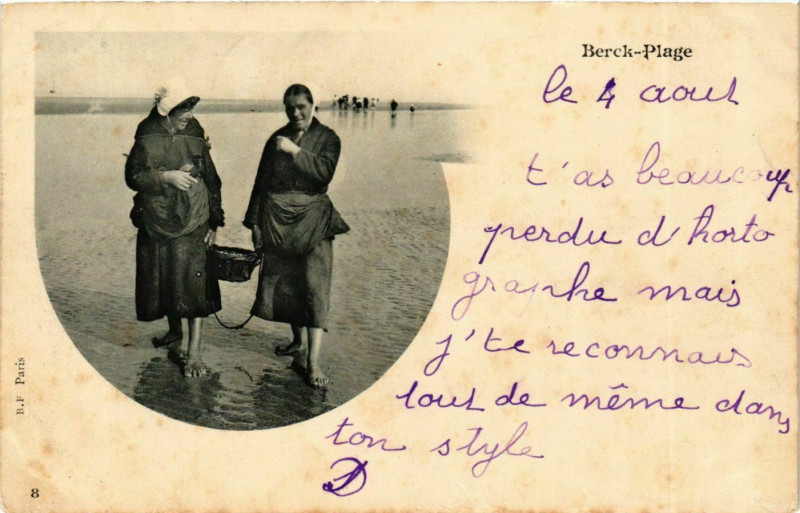 Berck-Plage
le 4 aout
t'as beaucoup
perdu d'horto
graphe mais
j'te reconnais
tout de même dans
ton style
D
B.F Paris
8